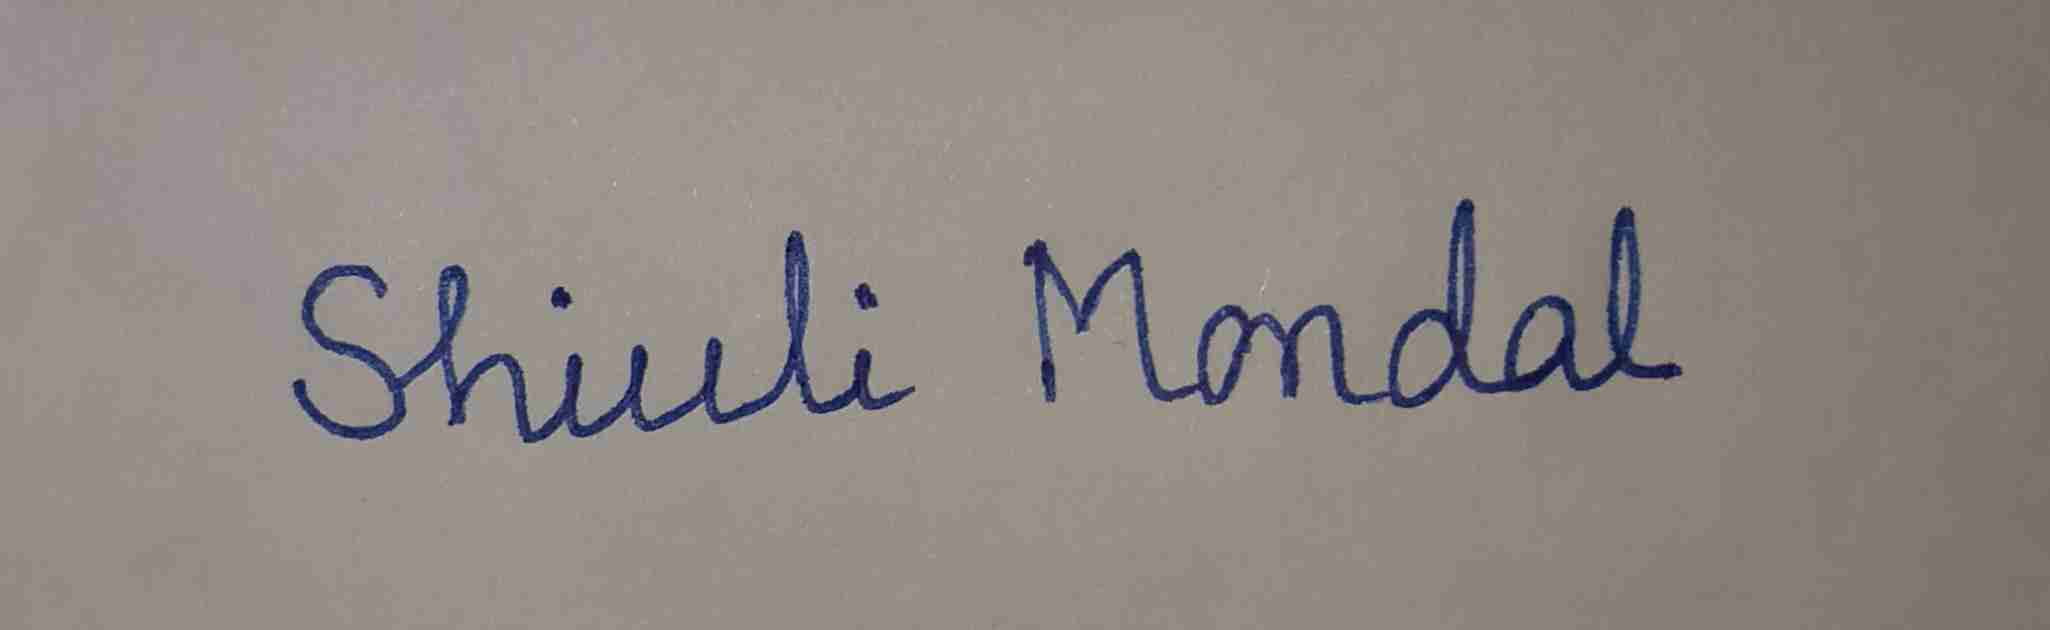 Shiuli Mondal